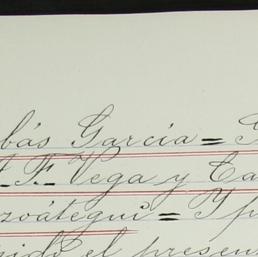 bás Garcia =
F. Vega y Ca
zoátegui = Yp
el presen